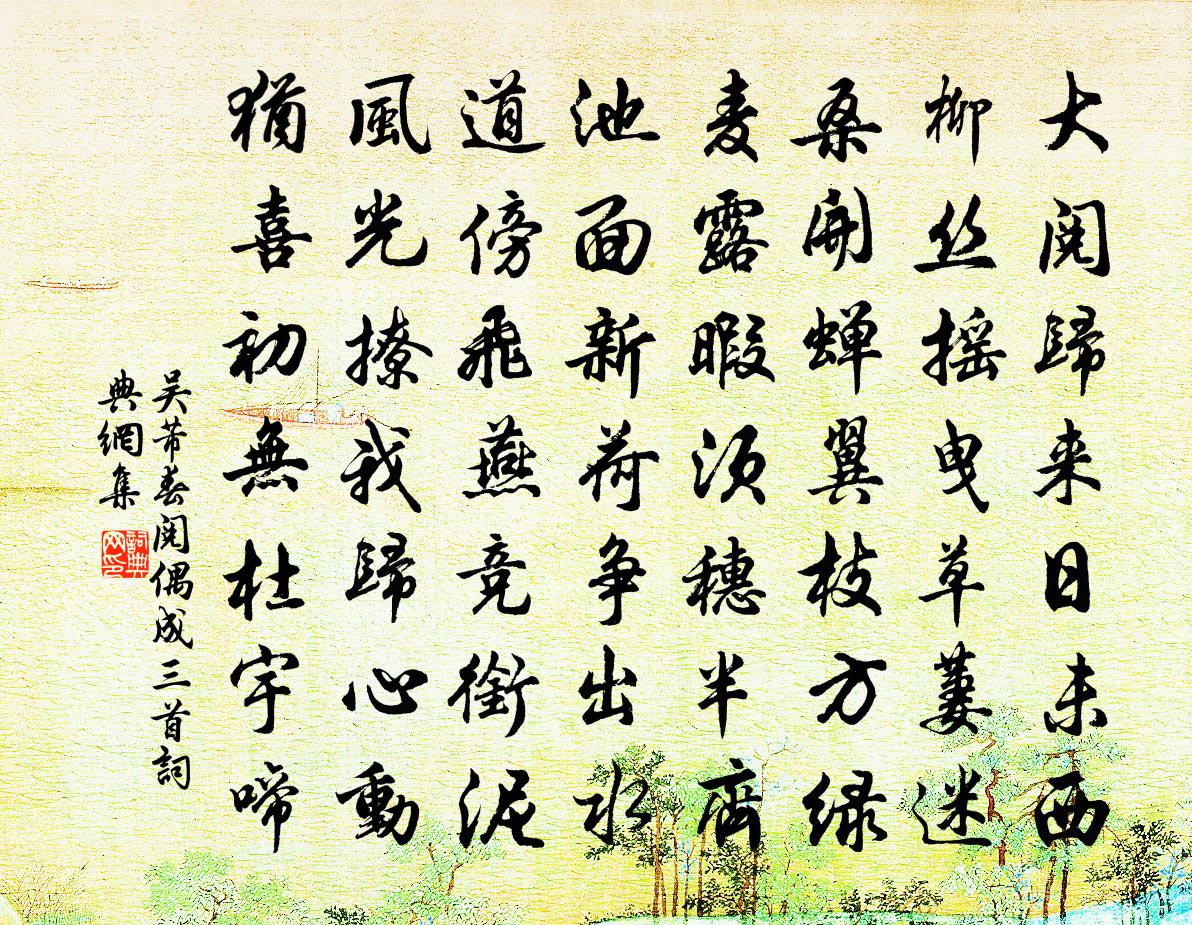 大閱歸来日未西
柳丝摇曳草萋迷
桑開蝉翼枝方緑
麦露暇须穗半齊
池面新荷争出水
道傍飛燕竞銜泥
風光撩我歸心動
猶喜初無杜宇啼
吴芾春閱偶成三首詞
典網集
詞典
网印